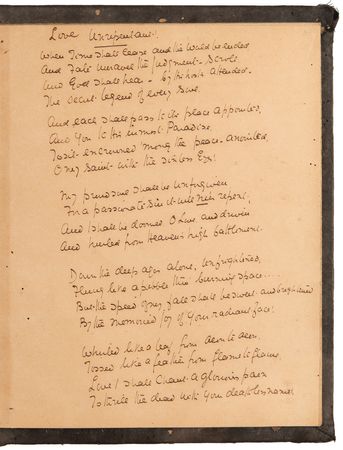 Love Unrepentant.
When Time shall cease and the world be ended
And Fate unravel the Judgment-Scroll
And God shall hear - by His hosts attended -
The secret legend of every Soul.
And each shall pass to its place appointed,
And You to His inmost Paradise,
To sit encrowned 'mong the peace-anointed,
O my Saint with the sinless Eyes!
My proud soul shall be unforgiven
For a passionate Sin it will ne'er repent,
And I shall be doomed, O Love, and driven
And hurled from Heaven's high battlement.
Down the deep ages alone, unfrightened,
Flung like a pebble thro' burning space...
But the speed of my fall shall be sweet and brightened
By the memoried joy of your radiant face!
Whirled like a leaf from aeon to aeon,
Tossed like a feather from flame to flame,
Love! I shall chant a glorious paean
To thrill the dead with your deathless name!